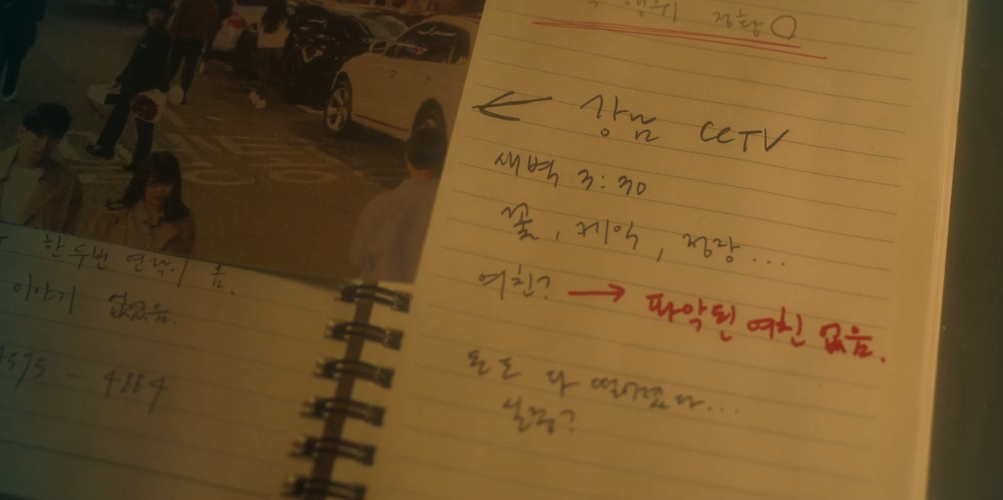 한 두번 연락이 옴.
이야기 없었음.
4884
정황
← 강남 CCTV
새벽 3:30
꽃, 제약, 정장...
여친? → 파악된 여친 없음.
돈도 다 떨어졌다...
실종?